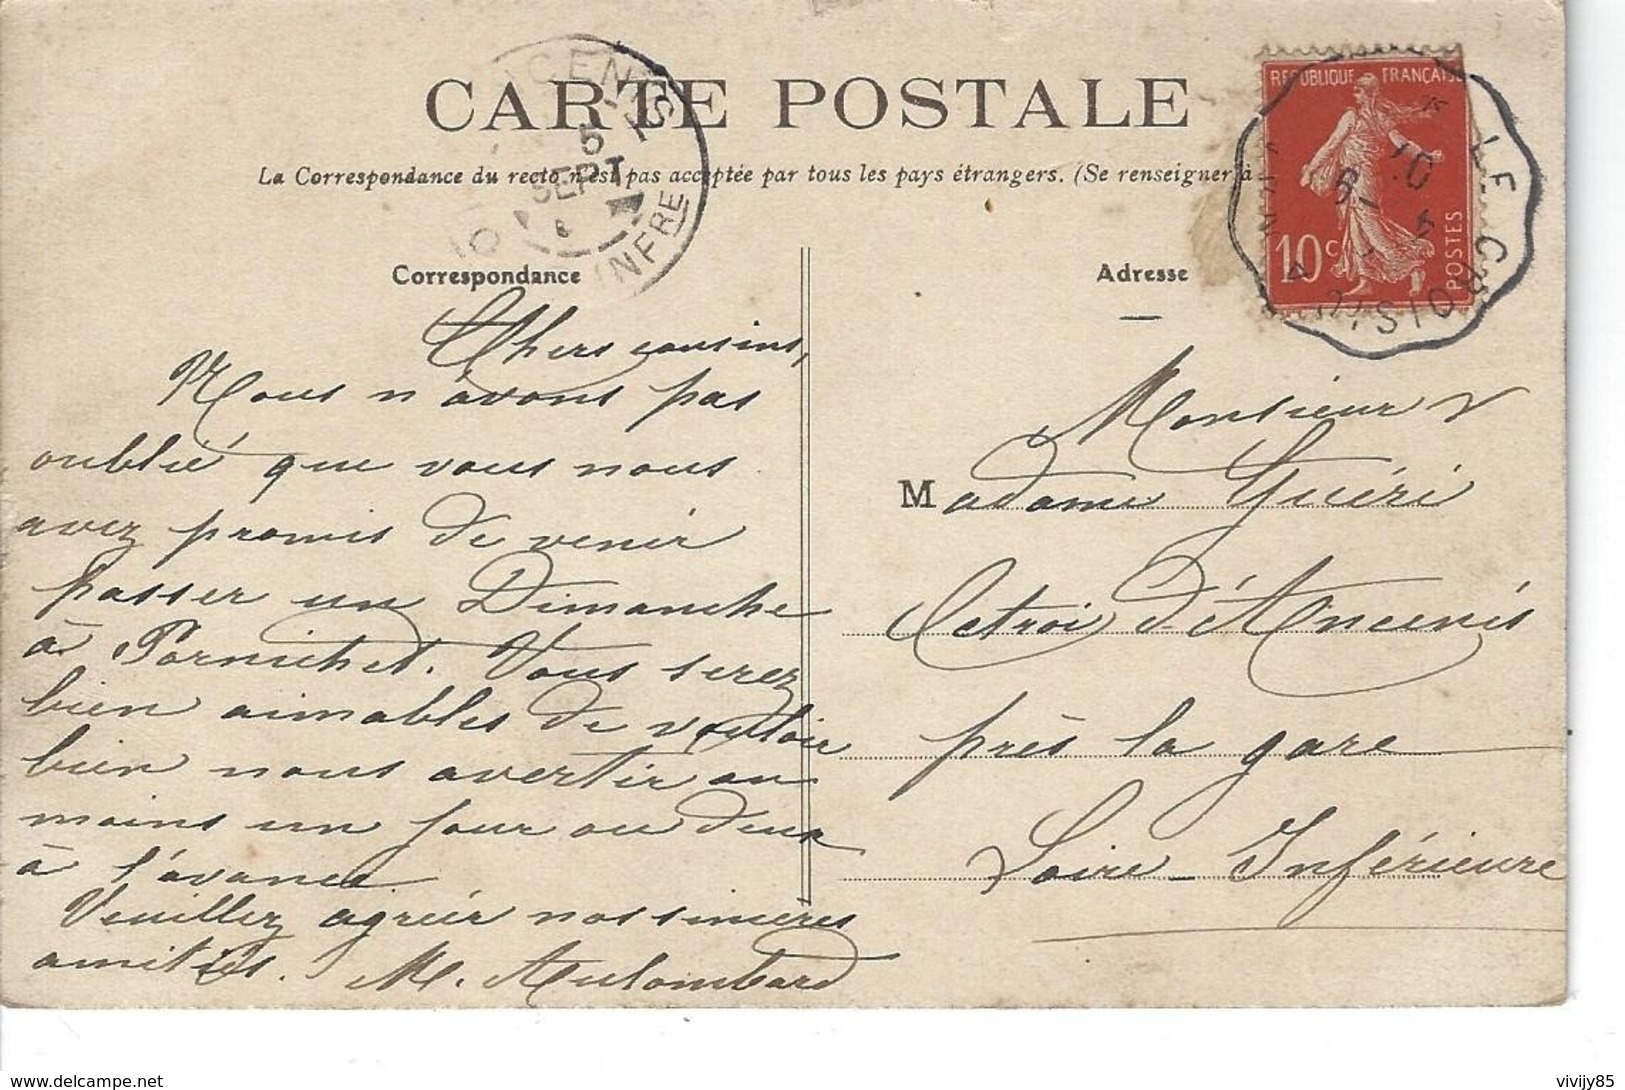 CARTE POSTALE
La Correspondance du recto n'est pas acceptée par tous les pays étrangers. (Se renseigner à
ANCENIS
5
SEPT
INFRE
REPUBLIQUE FRANÇAISE
10c
POSTES
LE CROISIC A
Correspondance
Chers cousins,
Nous n'avons pas
oublié que vous nous
avez promis de venir
passer un Dimanche
à Pornichet. Vous serez
bien aimables de vouloir
bien nous avertir au
moins un jour ou deux
à l'avance
Veuillez agréér nos sincères
amitiés. M.
Adresse
Monsieur &
Madame Guéri
Octroi d'Ancenis
près la gare
Loire-Inférieure
vivijy85